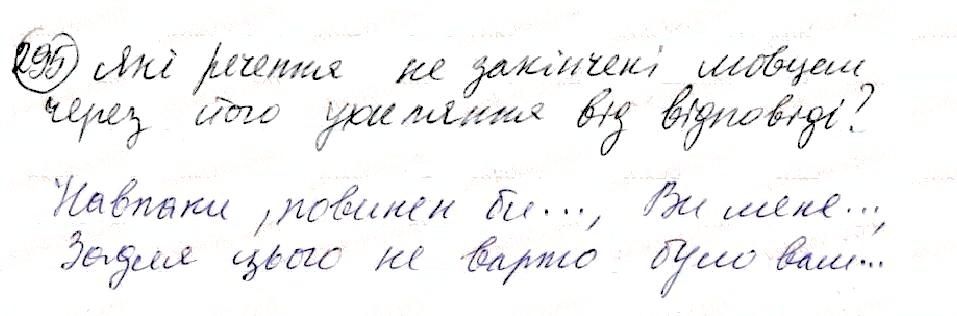 295 Які речення не закінчені мовцем
через його ухиляння від відповіді?
Навпаки, повинен би..., Ви мене...,
Задля цього не варто було вам...